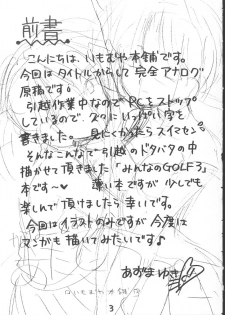 前書
こんにちは、いもむや本舗です。
今回はタイトルからして完全アナログ
原稿です。
引越作業中なのでPCをストップ
しているので、ズラズラいっぱい字を
書きました。見にくかったらスイマセン
そんなこんなで引越のドタバタの中
描かせて頂きました「みんなのGOLF3」
本です〜♥ 薄い本ですが少しでも
楽しんで頂けましたら幸いです。
今回はイラストのみですが今度は
マンガも描いてみたいです♪
あずまゆき
3